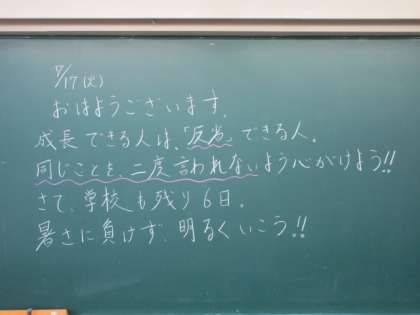 7/17(火)
おはようございます。
成長できる人は、「反省」できる人。
同じことを、二度言われないよう心がけよう!!
さて、学校も残り6日。
暑さに負けず、明るくいこう!!